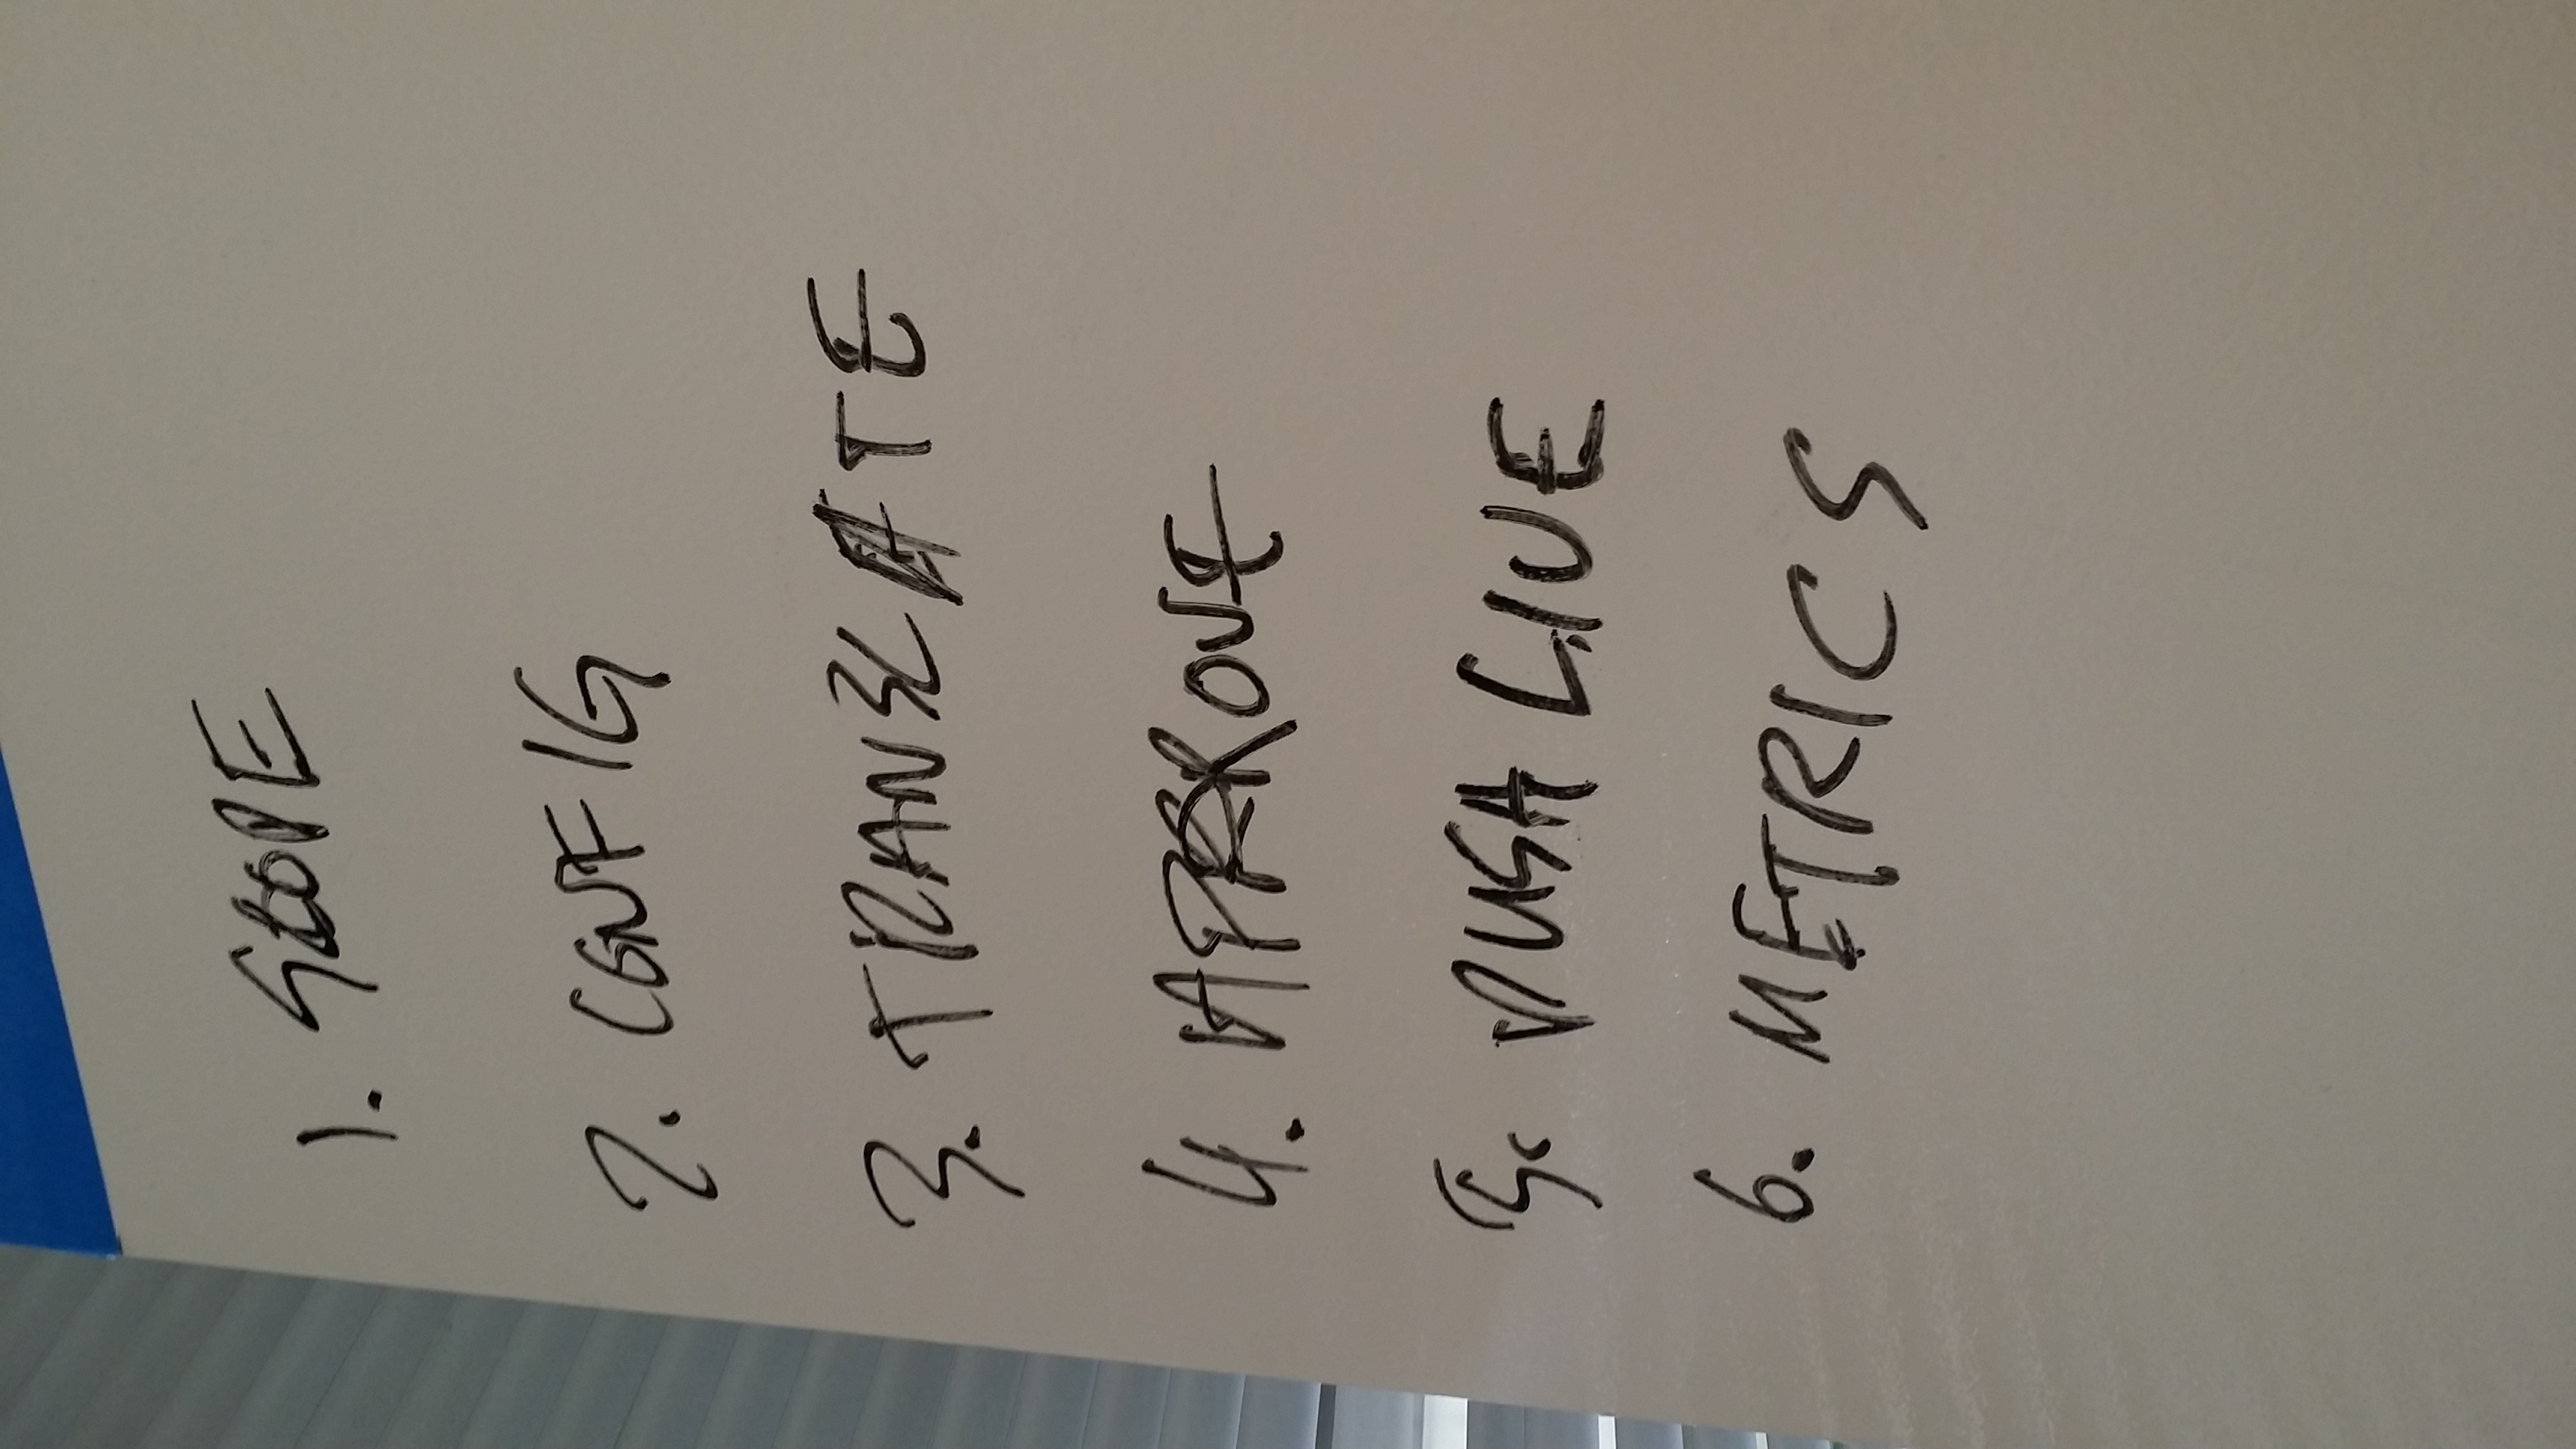 1. SCOPE
2. CONFIG
3. TRANSLATE
4. APPROVE
5. PUSH LIVE
6. METRICS